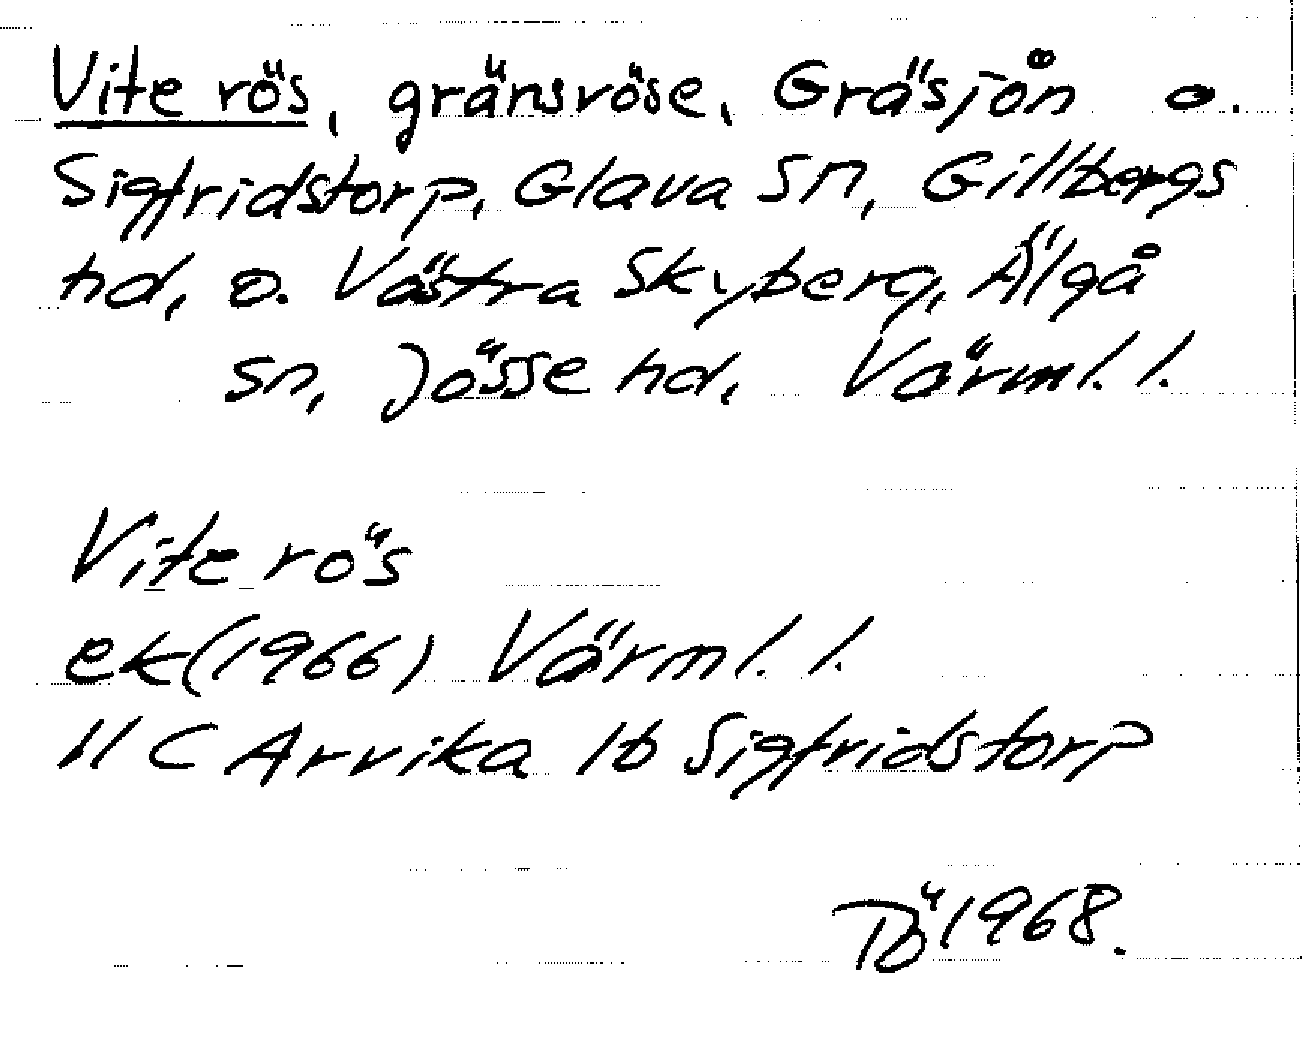 Vite rös, gränsröse, Gräsjön o.
Sigfridstorp, Glava sn, Gillbergs
hd, o. Västra Skyberg, Älgå
sn, Jösse hd, Värml. l.
Vite rös
ek (1966) Värml. l.
11 C Arvika 1b Sigfridstorp
1968.